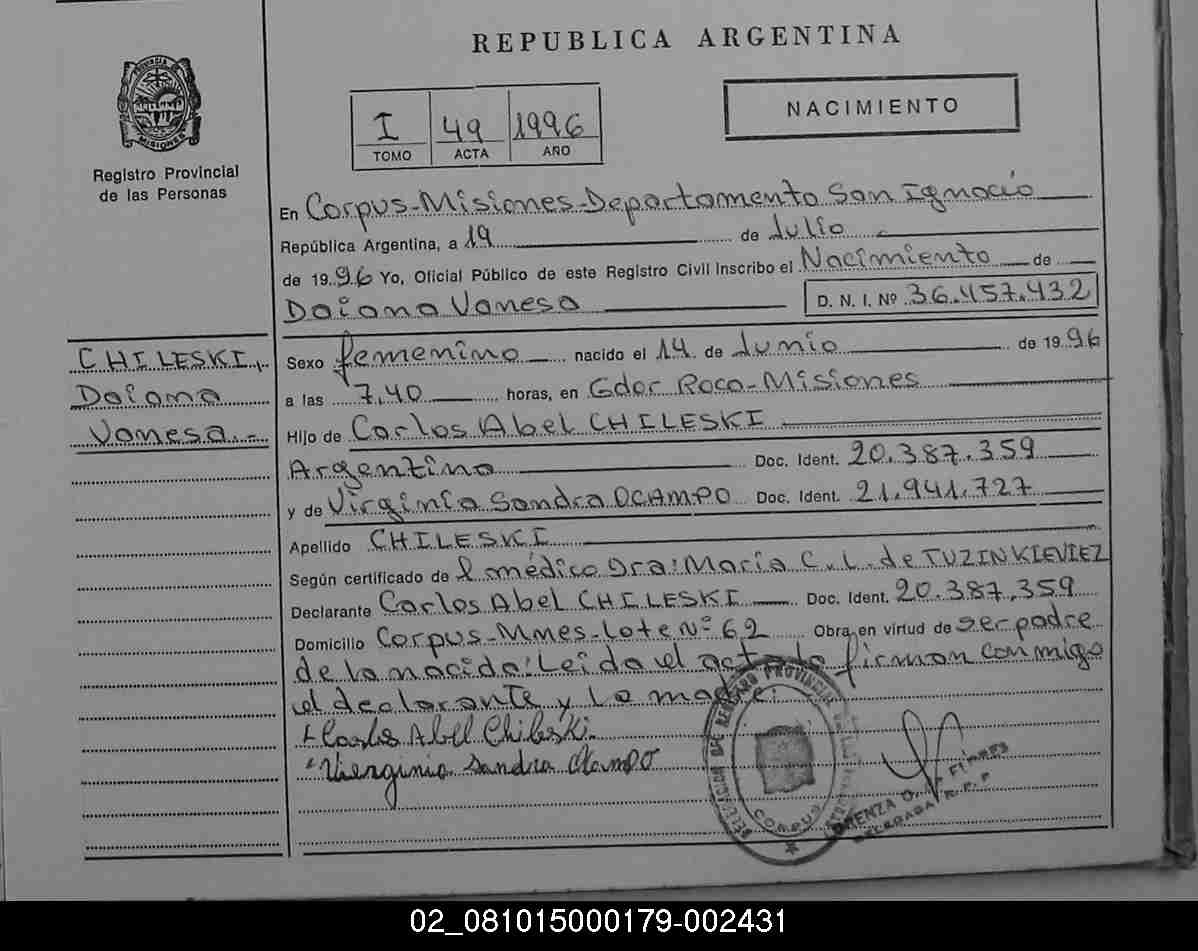 REPUBLICA ARGENTINA
PROVINCIA DE
MISIONES
Registro Provincial
de las Personas
I 49 1996
TOMO ACTA AÑO
NACIMIENTO
En Corpus-Misiones-Departamento San Ignacio
República Argentina, a 19 de Julio
de 1996 Yo, Oficial Público de este Registro Civil Inscribo el Nacimiento de
Daiana Vanesa D. N. I. Nº 36.457.432
CHILESKI,
Daiana
Vanesa.-
Sexo femenino nacido el 14 de Junio de 1996
a las 7,40 horas, en Gdor Roca-Misiones
Hijo de Carlos Abel CHILESKI
Argentino Doc. Ident. 20.387.359
y de Virginia Sandra OCAMPO Doc. Ident. 21.941.727
Apellido CHILESKI
Según certificado de l médico Dra: María C. L. de TUZINKIEVIEZ
Declarante Carlos Abel CHILESKI Doc. Ident. 20.387.359
Domicilio Corpus-Mnes-Lote Nº 62 Obra en virtud de ser padre
de la nacida: Leida el acta la firman conmigo
el declarante y la madre:
Carlos Abel Chileski
Vierginia Sandra Ocampo
DEL REGISTRO PROVINCIAL
CORPUS
DELEGADA R.P.P
02_081015000179-002431